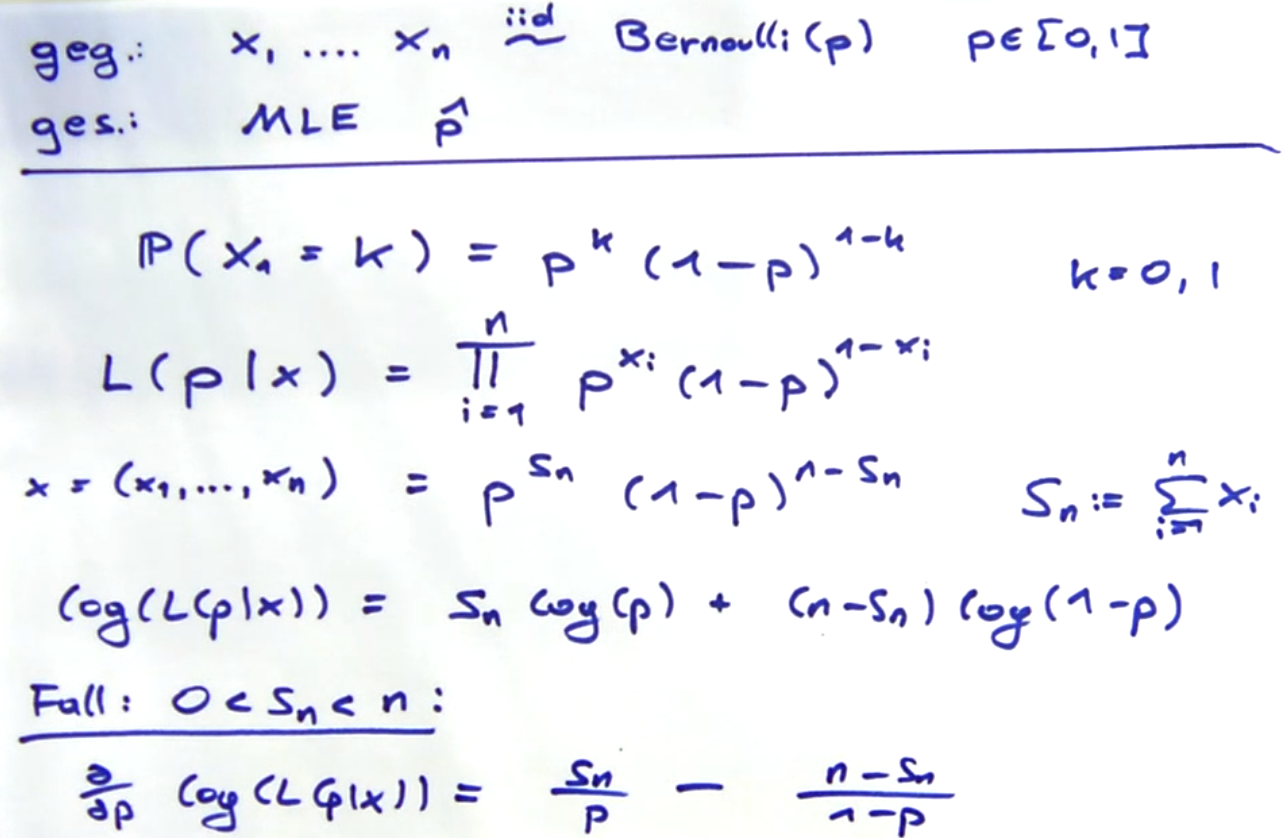 geg.: x₁ .... xₙ iid ~ Bernoulli(p) p∈[0,1]
ges.: MLE p̂
ℙ(X₁ = k) = p^k (1-p)^{1-k} k=0,1
L(p|x) = ∏_{i=1}^{n} p^{x_i} (1-p)^{1-x_i}
x = (x₁,...,xₙ) = p^{Sₙ} (1-p)^{1-Sₙ} Sₙ := ∑_{i=1}^{n} x_i
log(L(p|x)) = Sₙ log(p) + (n-Sₙ) log(1-p)
Fall: 0 < Sₙ < n:
∂/∂p log(L(p|x)) = Sₙ/p - (n-Sₙ)/(1-p)